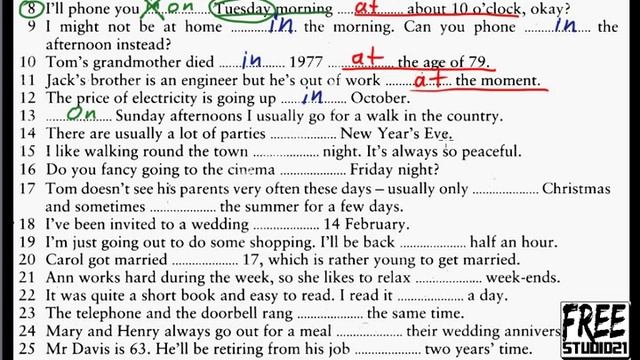 8 I'll phone you ...on... Tuesday morning ...at... about 10 o'clock, okay?
9 I might not be at home ...in... the morning. Can you phone ...in... the
afternoon instead?
10 Tom's grandmother died ...in... 1977 ...at... the age of 79.
11 Jack's brother is an engineer but he's out of work ...at... the moment.
12 The price of electricity is going up ...in... October.
13 ...On... Sunday afternoons I usually go for a walk in the country.
14 There are usually a lot of parties ............ New Year's Eve.
15 I like walking round the town ............ night. It's always so peaceful.
16 Do you fancy going to the cinema ............ Friday night?
17 Tom doesn't see his parents very often these days – usually only ............ Christmas
and sometimes ............ the summer for a few days.
18 I've been invited to a wedding ............ 14 February.
19 I'm just going out to do some shopping. I'll be back ............ half an hour.
20 Carol got married ............ 17, which is rather young to get married.
21 Ann works hard during the week, so she likes to relax ............ week-ends.
22 It was quite a short book and easy to read. I read it ............ a day.
23 The telephone and the doorbell rang ............ the same time.
24 Mary and Henry always go out for a meal ............ their wedding annivers
25 Mr Davis is 63. He'll be retiring from his job ............ two years' time.
FREE
STUDIO21